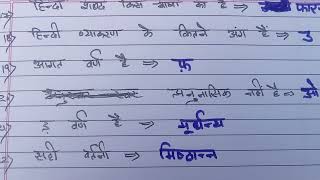 हिन्दी शब्द किस भाषा का है ⇒ फार
18) हिन्दी व्याकरण के कितने अंग हैं ⇒ 3
19) आगत वर्ण है ⇒ फ़
अनुनासिक नहीं है ⇒
ड़ वर्ण है ⇒ मूर्धन्य
सही वर्तनी ⇒ मिष्ठान्न